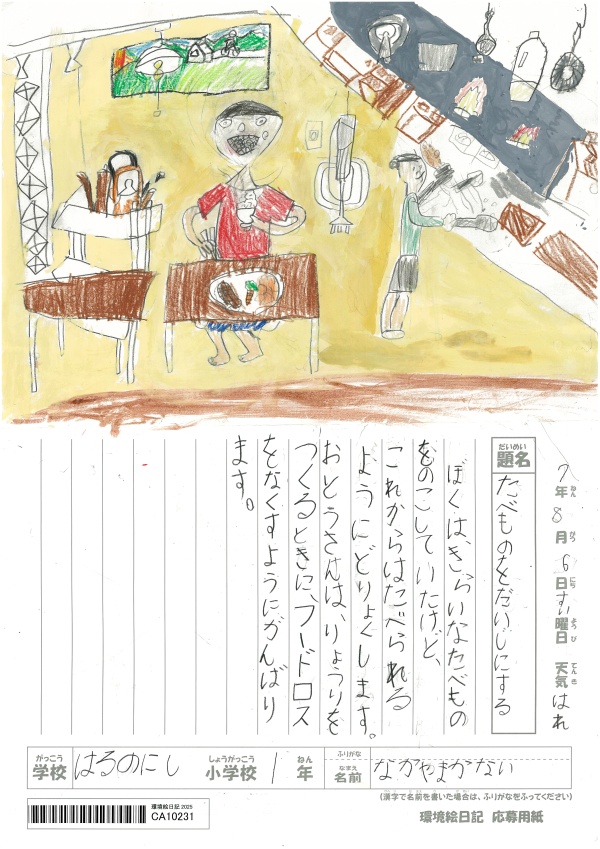 7年ねん8月がつ6日にちすい曜日ようび 天気てんきはれ
題名だいめい たべものをだいじにする
ぼくは、きらいなたべもの
をのこしていたけど、
これからはたべられる
ようにどりょくします。
おとうさんは、りょうりを
つくるときに、フードロス
をなくすようにがんばり
ます。
学校がっこう はるのにし 小学校しょうがっこう 1年ねん 名前なまえ ふりがな なかやまかない
(漢字で名前を書いた場合は、ふりがなをふってください)
環境絵日記 2025
CA10231
環境絵日記 応募用紙